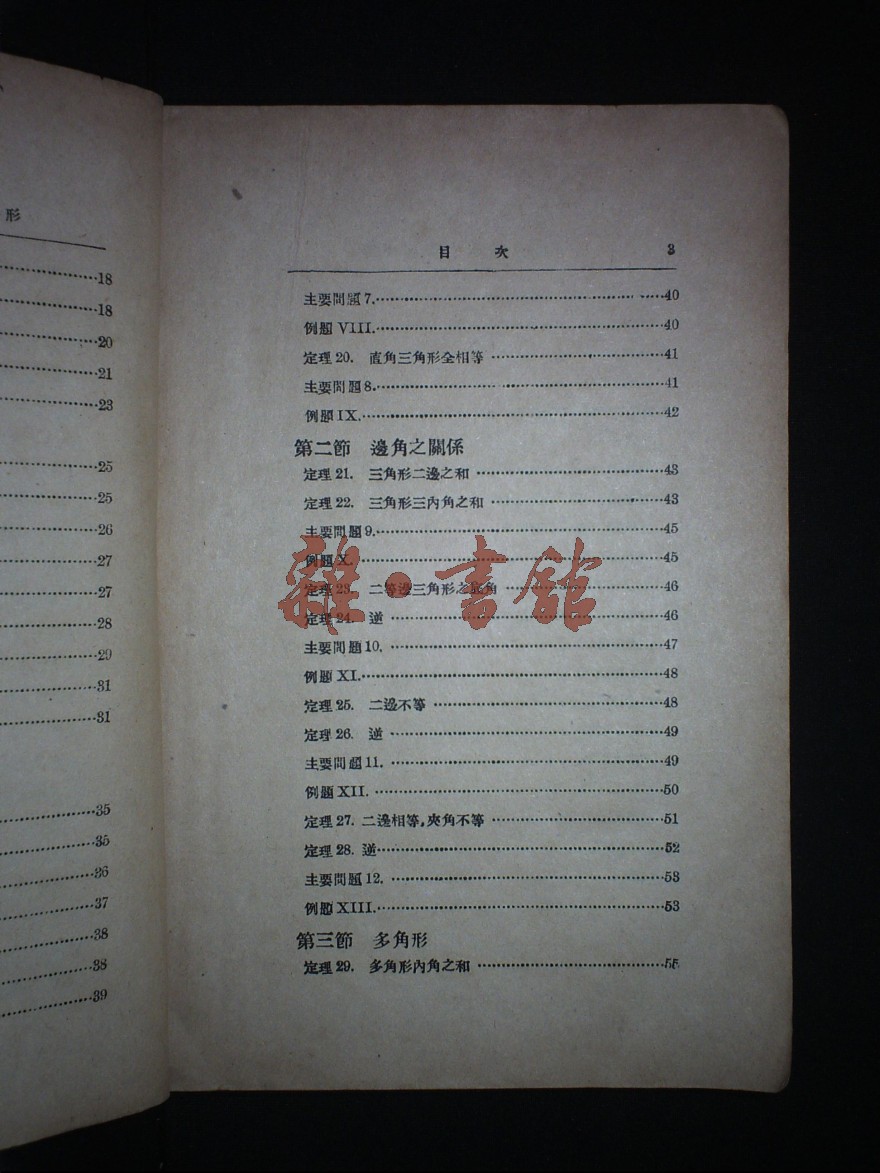 形
18
18
20
21
23
25
25
26
27
27
28
29
31
31
35
35
36
37
38
38
39
目 次 3
主要問題7. 40
例題 VIII. 40
定理20. 直角三角形全相等 41
主要問題8. 41
例題 IX. 42
第二節 邊角之關係
定理21. 三角形二邊之和 43
定理22. 三角形三內角之和 43
主要問題9. 45
例題 X. 45
定理23. 二等邊三角形之底角 46
定理24. 逆 46
主要問題10. 47
例題 XI. 48
定理25. 二邊不等 48
定理26. 逆 49
主要問題11. 49
例題 XII. 50
定理27. 二邊相等,夾角不等 51
定理28. 逆 52
主要問題12. 53
例題 XIII. 53
第三節 多角形
定理29. 多角形內角之和 55
雜·書館